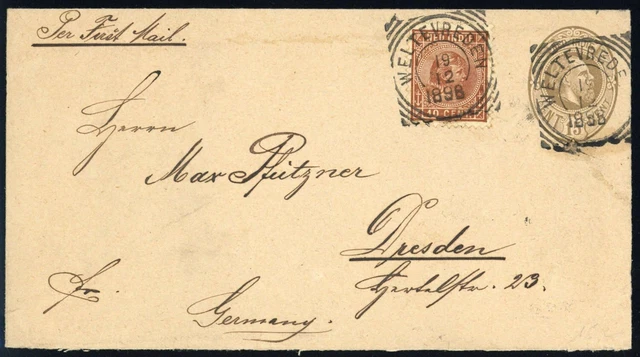 Per First Mail.
WELTEVREDEN
19
12
1898
10 CENT
WELTEVREDEN
19
12
1898
15
Herrn
Max Pfützner
Dresden
Hertelstr. 23.
Fr.
Germany.